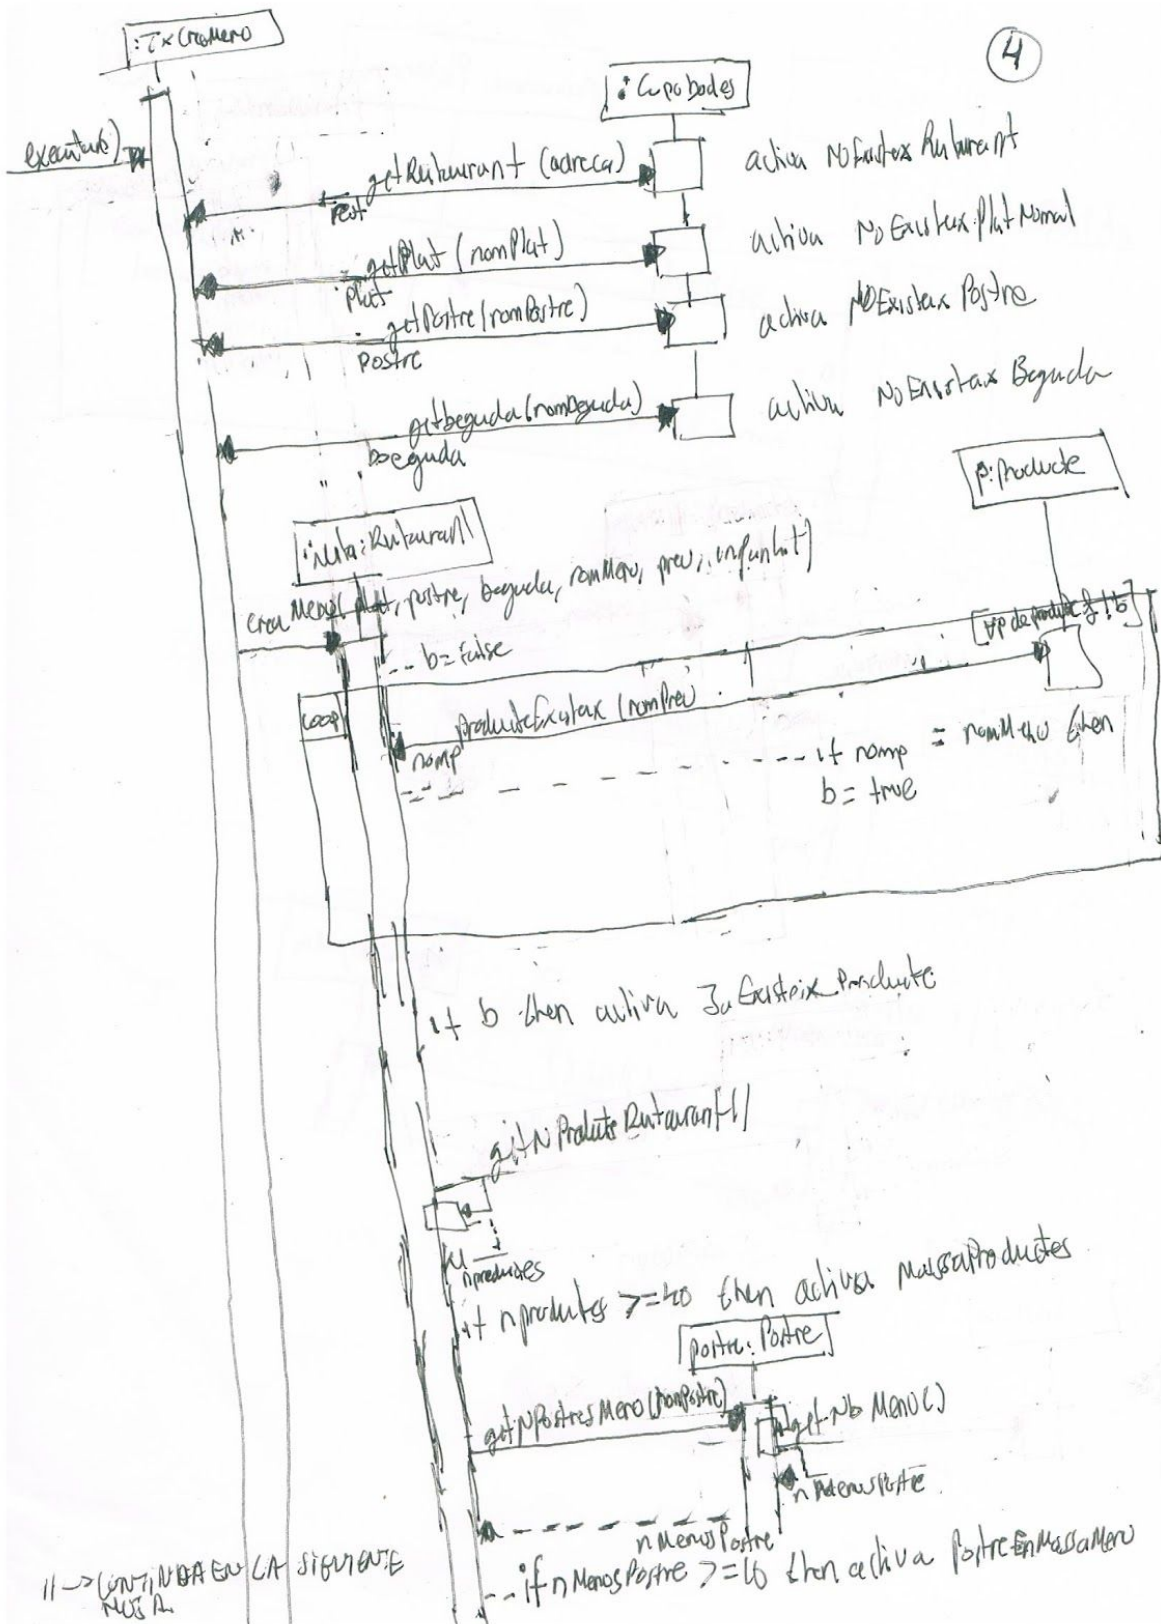 :TxCreaMenú
4
: Capabodes
executar()
getRestaurant (adreca)
activa NoExisteix Restaurant
rest
getPlat (nomPlat)
activa NoExisteix Plat Nomal
plat
getPostre (nomPostre)
activa NOExisteix Postre
postre
getbeguda (nomBeguda)
activa NoExisteix Beguda
beguda
p: Producte
Restaurant
crea Menú (plat, postre, beguda, nomMenú, preu, infantil)
-- b = false
loop
producteExisteix (nomPreu
nomp
---- if nomp = nomMenu then
b = true
if b then activa JaExisteix Producte
getNProductsRestaurant()
nproductes
if nproductes >= 40 then activa MassaProductes
postre: Postre
getNPostresMenú (nomPostre)
get-Nb Menú()
nMenusPostre
nMenosPostre
-- if nMenosPostre >= then activa PostreEnMassaMenú
11 -> CONTINUA EN LA SIGUIENTE
HOJA